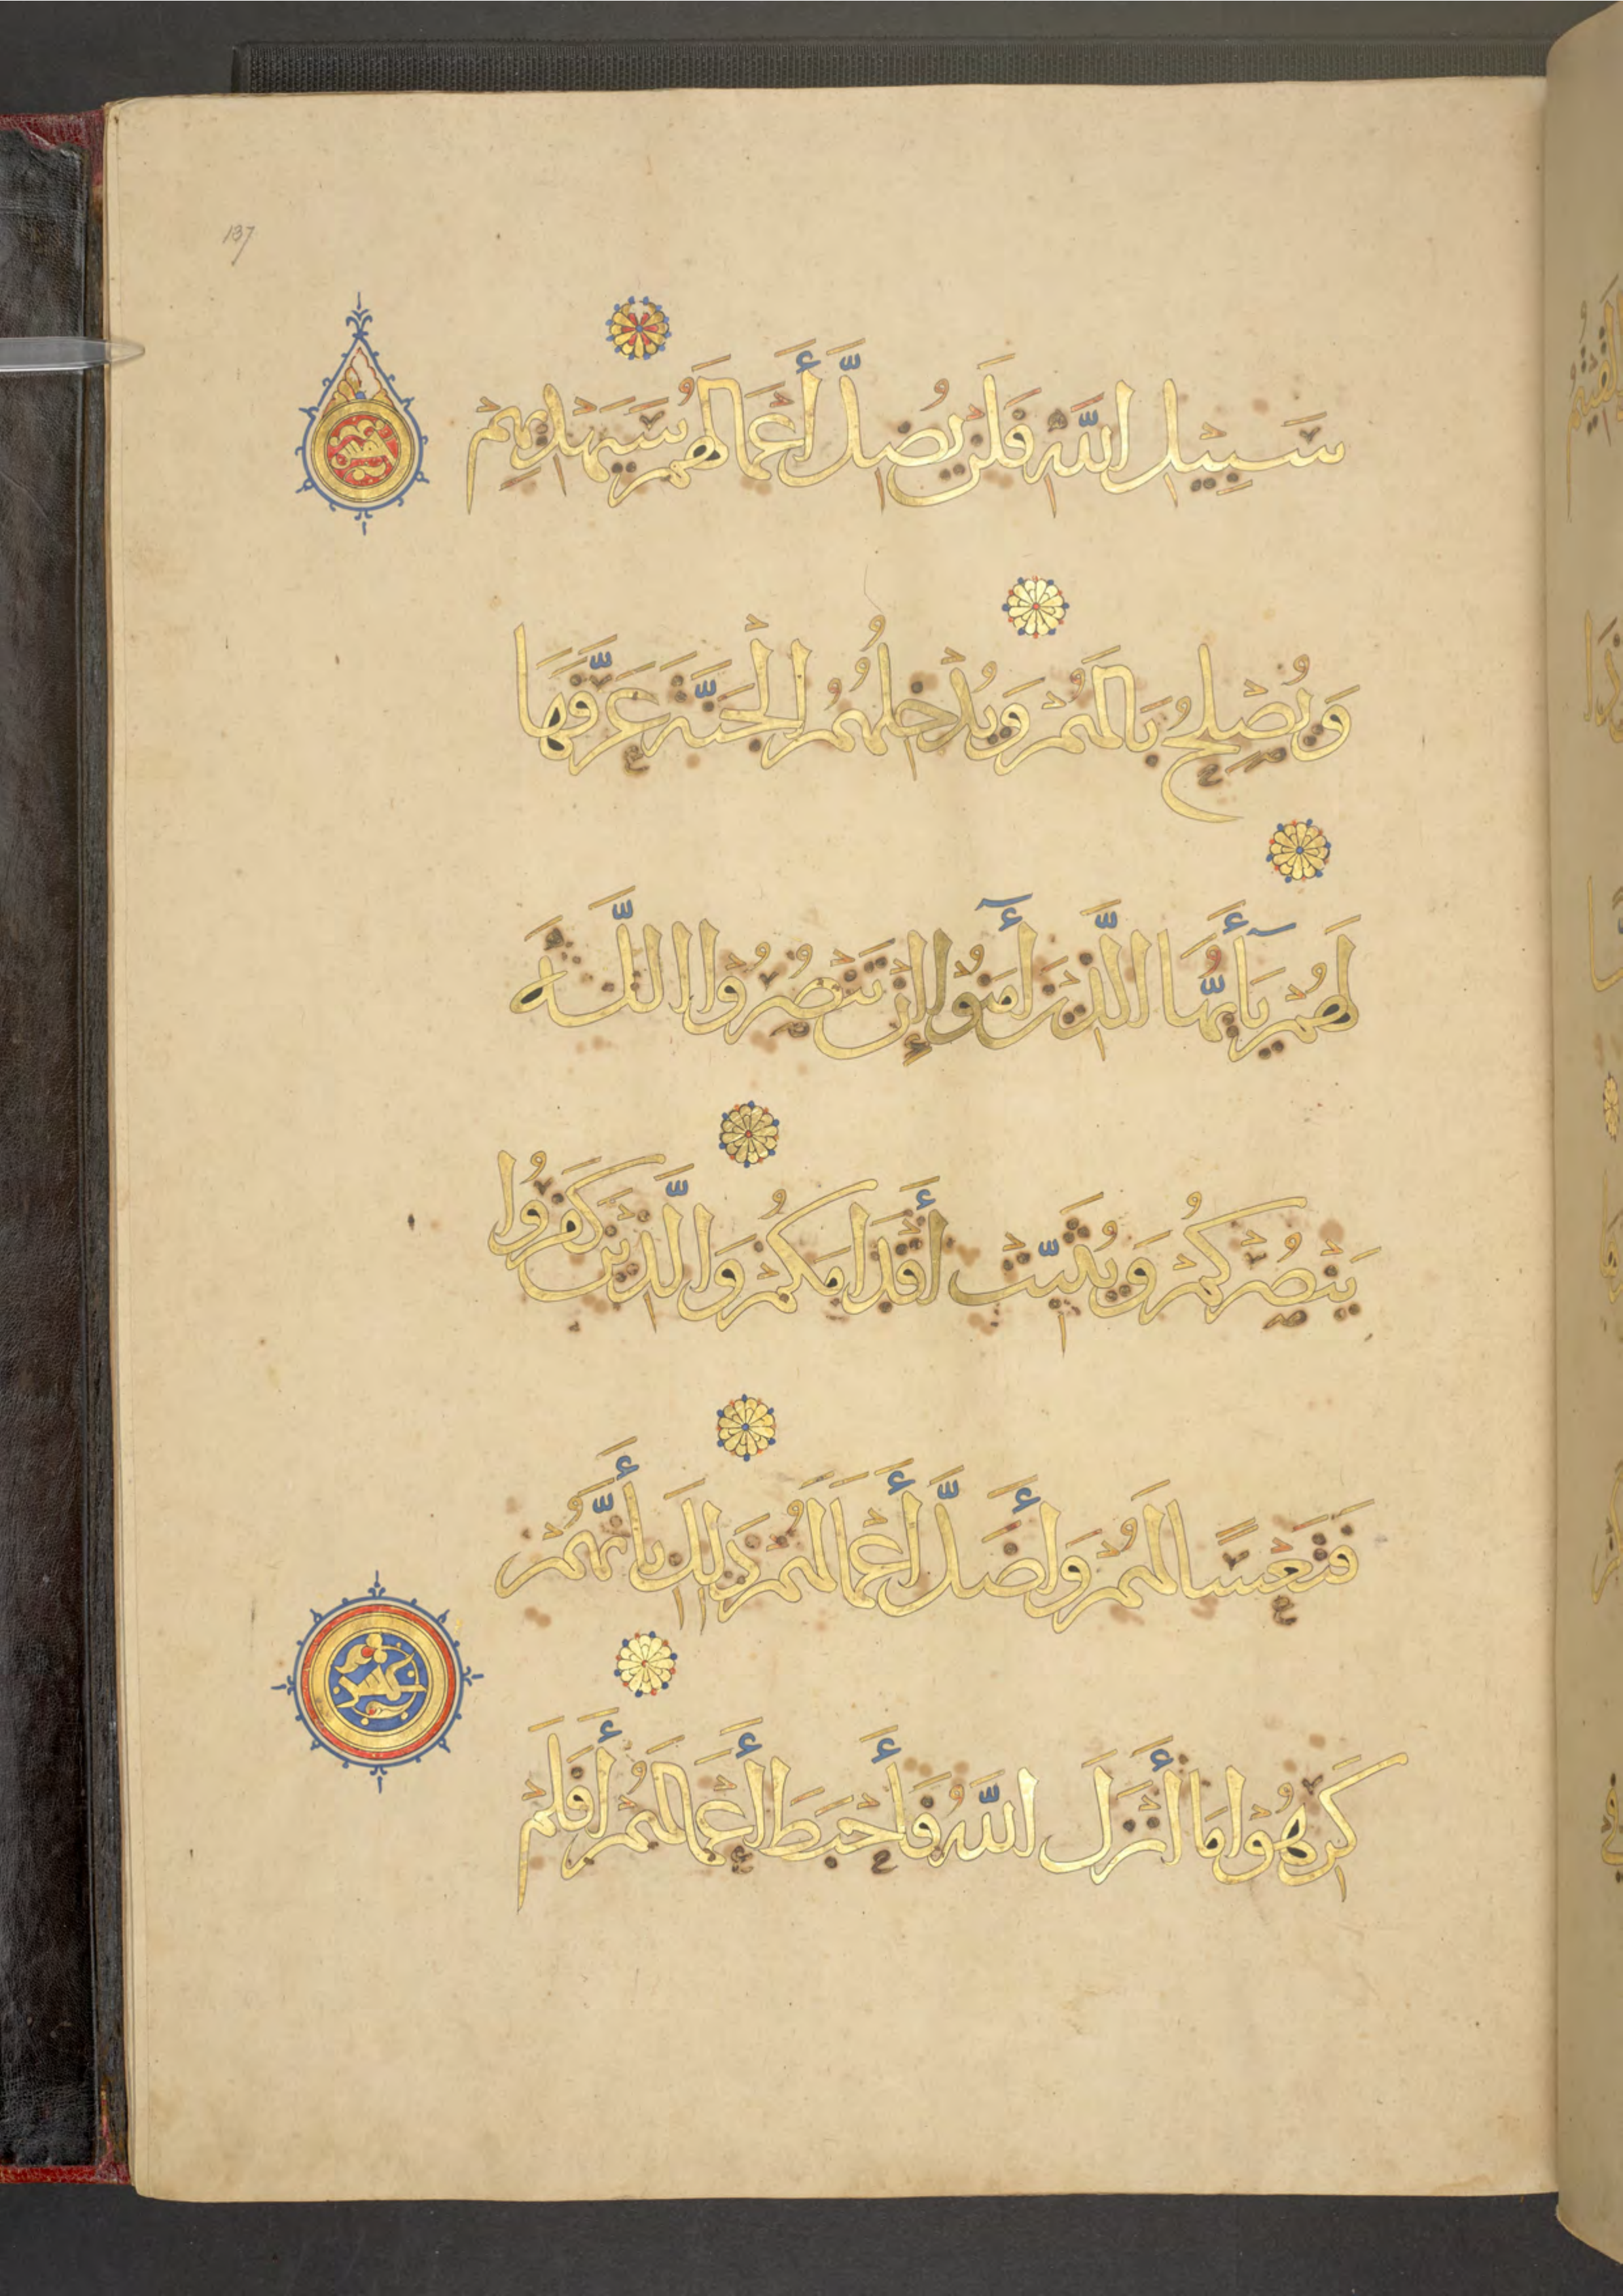 137
سَبِيلِ اللَّهِ فَلَن يُضِلَّ أَعْمَالَهُمْ سَيَهْدِيهِمْ
وَيُصْلِحُ بَالَهُمْ وَيُدْخِلُهُمُ الْجَنَّةَ عَرَّفَهَا
لَهُمْ يَا أَيُّهَا الَّذِينَ آمَنُوا إِن تَنصُرُوا اللَّهَ
يَنصُرْكُمْ وَيُثَبِّتْ أَقْدَامَكُمْ وَالَّذِينَ كَفَرُوا
فَتَعْسًا لَهُمْ وَأَضَلَّ أَعْمَالَهُمْ ذَلِكَ بِأَنَّهُمْ
كَرِهُوا مَا أَنْزَلَ اللَّهُ فَأَحْبَطَ أَعْمَالَهُمْ أَفَلَمْ